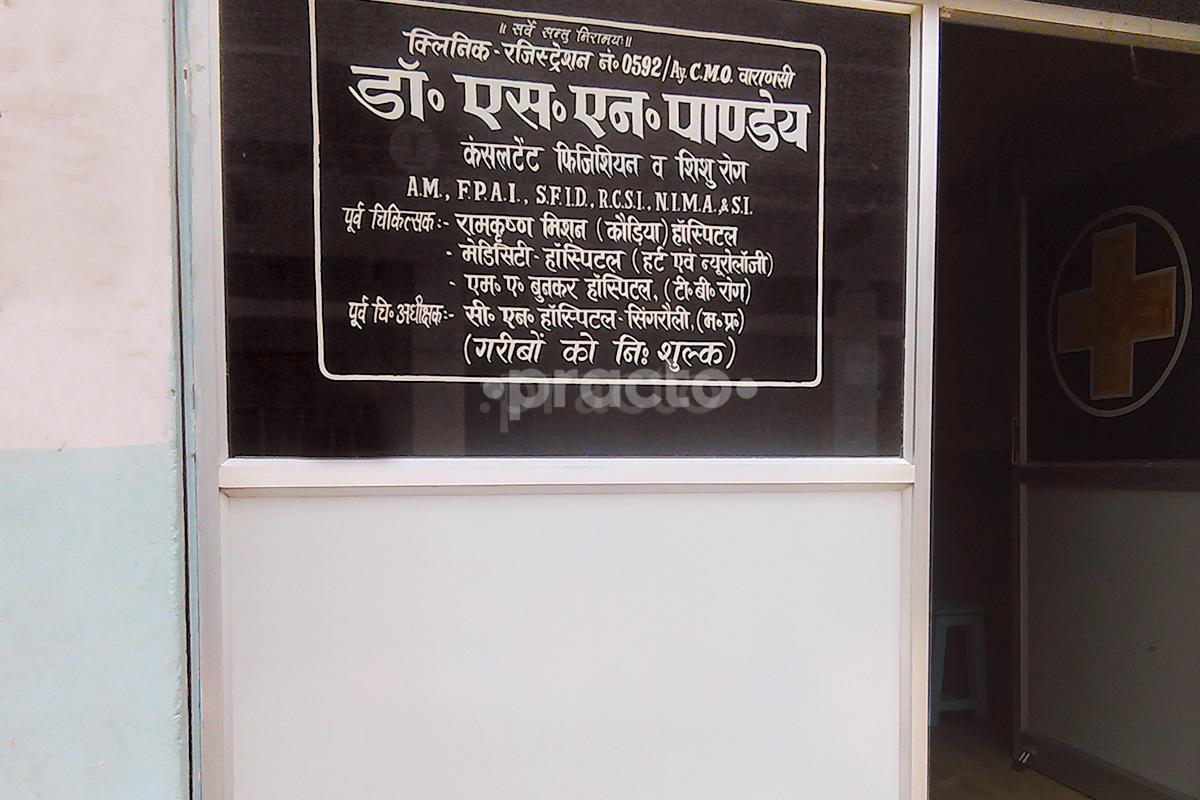 ॥ सर्वे सन्तु निरामयः॥
क्लिनिक-रजिस्ट्रेशन नं॰ 0592/Ay. C.M.O. वाराणसी
डॉ॰ एस॰ एन॰ पाण्डेय
कंसलटेंट फिजिशियन व शिशु रोग
A.M., F.P.A.I., S.F.I.D., R.C.S.I., N.I.M.A.,& S.I.
पूर्व चिकित्सकः- रामकृष्ण मिशन (कौड़िया) हॉस्पिटल
- मेडिसिटी-हॉस्पिटल (हर्ट एवं न्यूरोलॉजी)
- एम॰ ए॰ बुनकर हॉस्पिटल, (टी॰ बी॰ रोग)
पूर्व चि॰ अधीक्षकः- सी॰ एन॰ हॉस्पिटल-सिंगरौली, (म॰ प्र॰)
(गरीबों को निः शुल्क)
practo